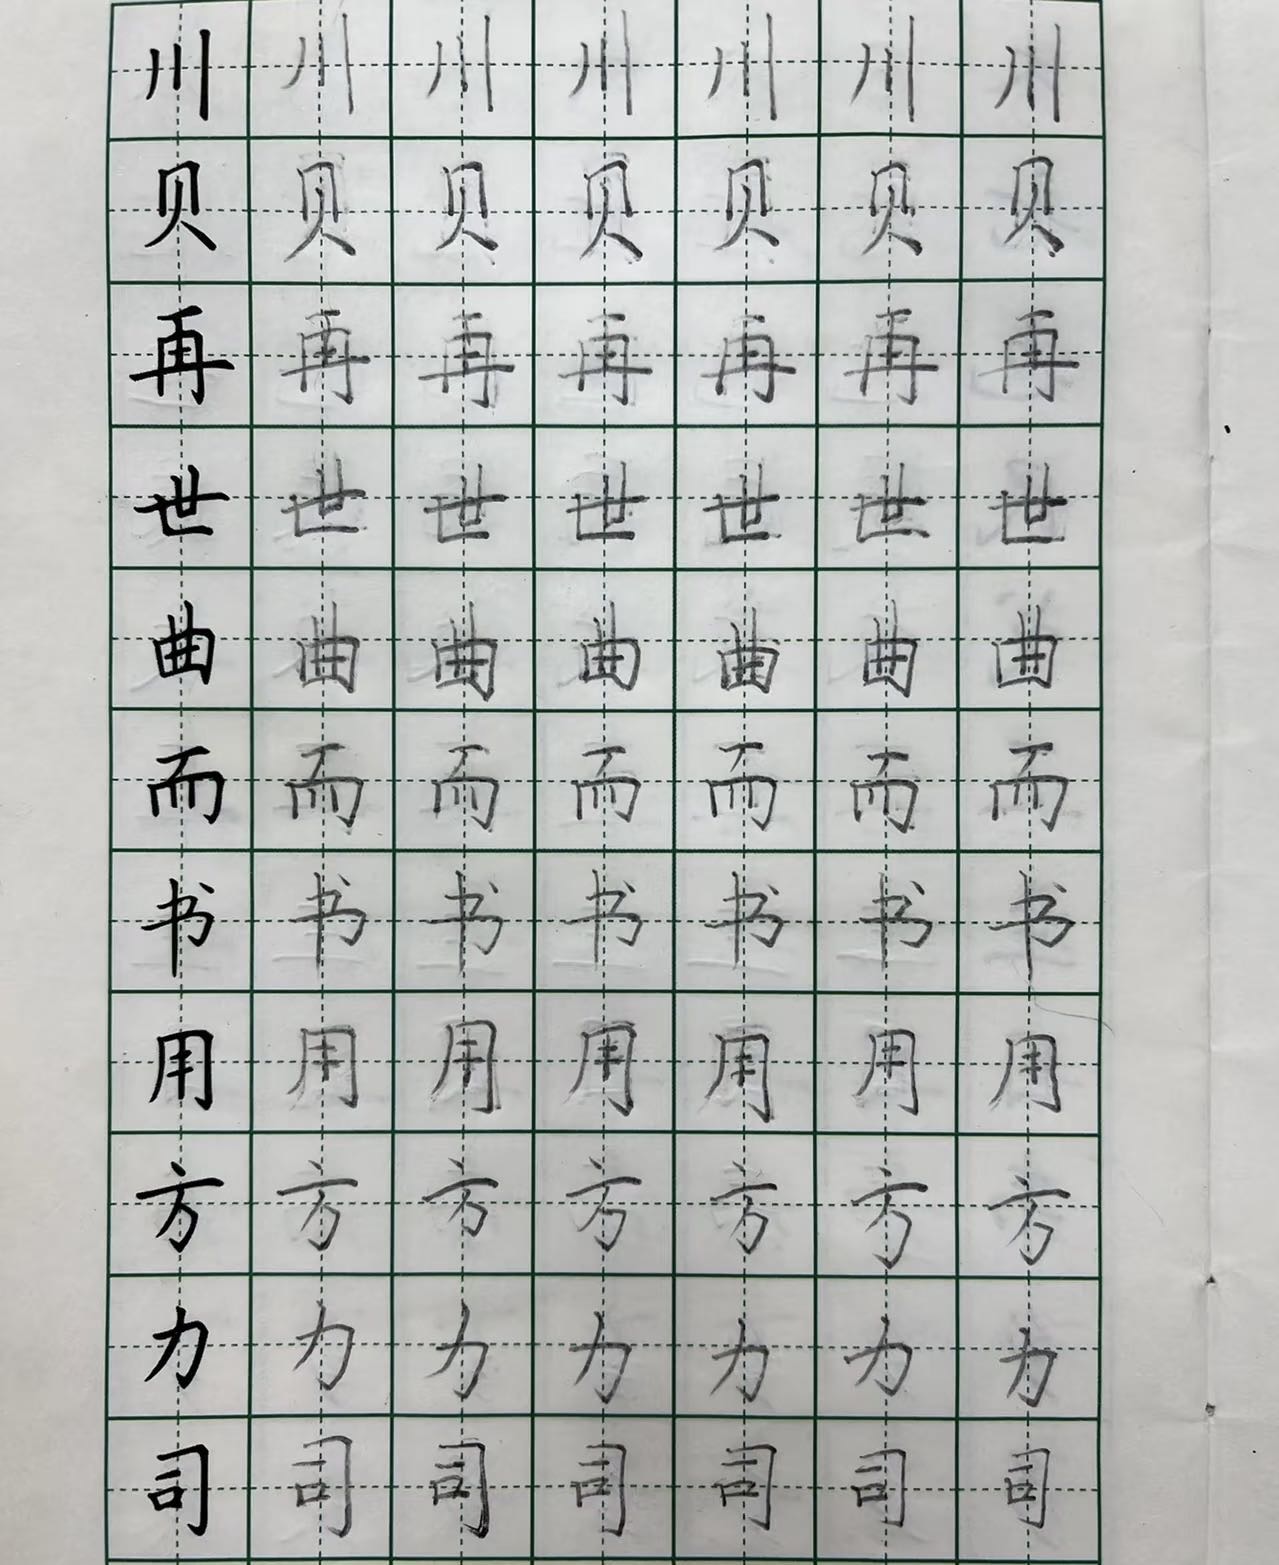 川川川川川川川
贝贝贝贝贝贝贝
再再再再再再再
世世世世世世世
曲曲曲曲曲曲曲
而而而而而而而
书书书书书书书
用用用用用用用
方方方方方方方
力力力力力力力
司司司司司司司